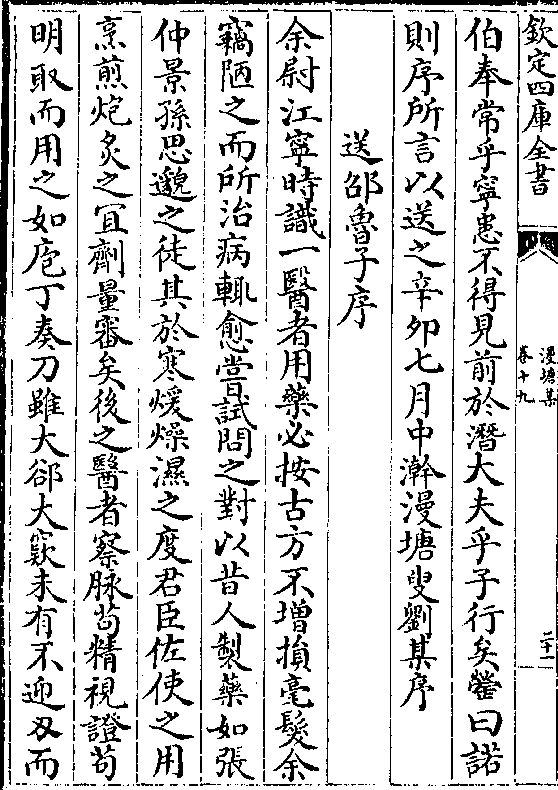 欽定四庫全書
漫塘集
卷十九
二十一
伯奉常乎寧患不得見前於潛大夫乎子行矣䶮曰諾
則序所言以送之辛卯七月中澣漫塘叟劉某序
送邵魯子序
余尉江寧時識一醫者用藥必按古方不增損毫髮余
竊陋之而所治病輒愈嘗試問之對以昔人製藥如張
仲景孫思邈之徒其於寒煖燥濕之度君臣佐使之用
烹煎炮炙之宜劑量審矣後之醫者察脉茍精視證茍
明取而用之如庖丁奏刀雖大郤大窾未有不迎刃而